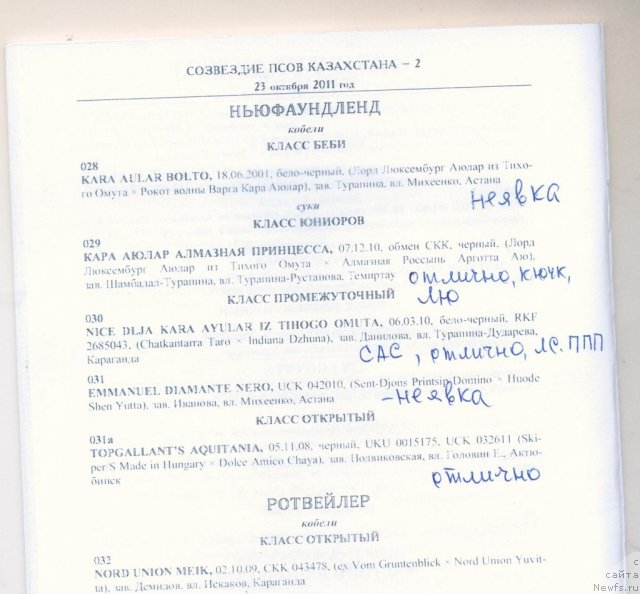 СОЗВЕЗДИЕ ПСОВ КАЗАХСТАНА – 2
23 октября 2011 год
НЬЮФАУНДЛЕНД
кобели
КЛАСС БЕБИ
028
KARA AULAR BOLTO, 18.06.2001, бело-черный, (Лорд Люксембург Аюлар из Тихо-
го Омута × Рокот волны Варга Кара Аюлар), зав. Турапина, вл. Михеенко, Астана
неявка
суки
КЛАСС ЮНИОРОВ
029
КАРА АЮЛАР АЛМАЗНАЯ ПРИНЦЕССА, 07.12.10, обмен СКК, черный, (Лорд
Люксембург Аюлар из Тихого Омута × Алмазная Россыпь Арготта Аю),
зав. Шамбадал-Турапина, вл. Турапина-Рустанова, Темиртау
отлично, КЮЧК,
ЛЮ
КЛАСС ПРОМЕЖУТОЧНЫЙ
030
NICE DLJA KARA AYULAR IZ TIHOGO OMUTA, 06.03.10, бело-черный, RKF
2685043, (Chatkantarra Taro × Indiana Dzhuna), зав. Данилова, вл. Турапина-Дударева,
Караганда
САС, отлично, ЛС. ППП
031
EMMANUEL DIAMANTE NERO, UCK 042010, (Sent-Djons Printsip Domino × Huode
Shen Yutta), зав. Иванова, вл. Михеенко, Астана
-неявка
КЛАСС ОТКРЫТЫЙ
031а
TOPGALLANT'S AQUITANIA, 05.11.08, черный, UKU 0015175, UCK 032611 (Ski-
per'S Made in Hungary × Dolce Amico Chaya), зав. Полвиковская, вл. Головин Е., Актю-
бинск
отлично
РОТВЕЙЛЕР
кобели
КЛАСС ОТКРЫТЫЙ
032
NORD UNION MEIK, 02.10.09, СКК 043478, (ex Vom Gruntenblick × Nord Union Yuvit-
ta), зав. Демидов, вл. Искаков, Караганда
с
сайта
Newfs.ru